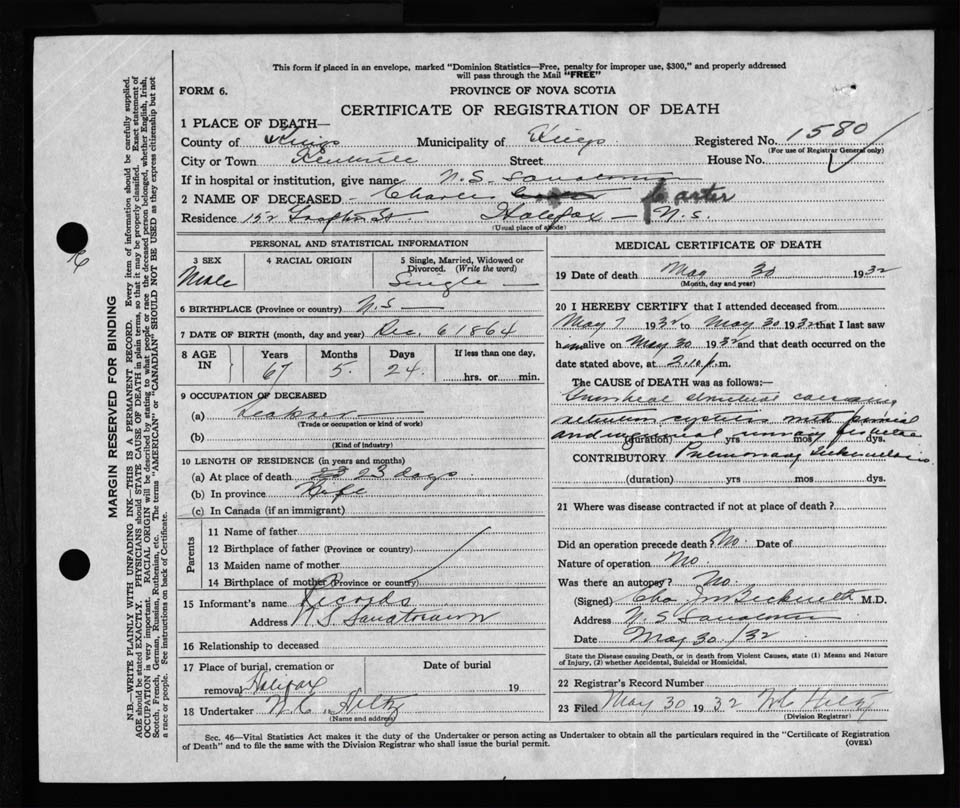 This form if placed in an envelope, marked "Dominion Statistics—Free, penalty for improper use, $300," and properly addressed
will pass through the Mail "FREE"
FORM 6.
PROVINCE OF NOVA SCOTIA
CERTIFICATE OF REGISTRATION OF DEATH
1 PLACE OF DEATH—
County of Kings Municipality of Kings Registered No. 1580
(For use of Registrar General only)
City or Town Kentville Street House No.
If in hospital or institution, give name N.S. Sanatorium
2 NAME OF DECEASED Charles Carter
Residence 152 St. Halifax — N.S.
(Usual place of abode)
PERSONAL AND STATISTICAL INFORMATION
3 SEX 4 RACIAL ORIGIN 5 Single, Married, Widowed or
Divorced. (Write the word)
Male Single
6 BIRTHPLACE (Province or country) N.S
7 DATE OF BIRTH (month, day and year) Dec. 6 1864
8 AGE IN Years Months Days If less than one day,
67 5 24 hrs. or min.
9 OCCUPATION OF DECEASED
(a)
(Trade or occupation or kind of work)
(b)
(Kind of industry)
10 LENGTH OF RESIDENCE (in years and months)
(a) At place of death 23 days
(b) In province Life
(c) In Canada (if an immigrant)
Parents
11 Name of father
12 Birthplace of father (Province or country)
13 Maiden name of mother
14 Birthplace of mother (Province or country)
15 Informant's name Records
Address N.S Sanatorium
16 Relationship to deceased
17 Place of burial, cremation or Date of burial
removal Halifax 19
18 Undertaker W.C. Hiltz
(Name and address)
MEDICAL CERTIFICATE OF DEATH
19 Date of death May 30 1932
(Month, day and year)
20 I HEREBY CERTIFY that I attended deceased from
May 7 1932 to May 30 1932 that I last saw
him alive on May 30 1932 and that death occurred on the
date stated above, at 2.10 p.m.
The CAUSE of DEATH was as follows:—
cystitis with
and
(duration) yrs mos dys.
CONTRIBUTORY Pulmonary Tuberculosis
(duration) yrs mos dys.
21 Where was disease contracted if not at place of death?
Did an operation precede death? No. Date of
Nature of operation No.
Was there an autopsy? No.
(Signed) Chas Beckwith M.D.
Address N S Sanatorium
Date May 30/32
State the Disease causing Death, or in death from Violent Causes, state (1) Means and Nature
of Injury, (2) whether Accidental, Suicidal or Homicidal.
22 Registrar's Record Number
23 Filed May 30 1932 W C Hiltz
(Division Registrar)
Sec. 46—Vital Statistics Act makes it the duty of the Undertaker or person acting as Undertaker to obtain all the particulars required in the "Certificate of Registration
of Death" and to file the same with the Division Registrar who shall issue the burial permit.
(OVER)
MARGIN RESERVED FOR BINDING
N.B.—WRITE PLAINLY WITH UNFADING INK—THIS IS A PERMANENT RECORD. Every item of information should be carefully supplied.
AGE should be stated EXACTLY. PHYSICIANS should STATE CAUSE OF DEATH in plain terms, so that it may be properly classified. Exact statement of
OCCUPATION is very important. RACIAL ORIGIN will be described by stating to what people or race the deceased person belonged, whether English, Irish,
Scotch, French, German, Russian, Ruthenian, etc. The terms "AMERICAN" or "CANADIAN" SHOULD NOT BE USED as they express citizenship but not
a race or people. See instructions on back of Certificate.